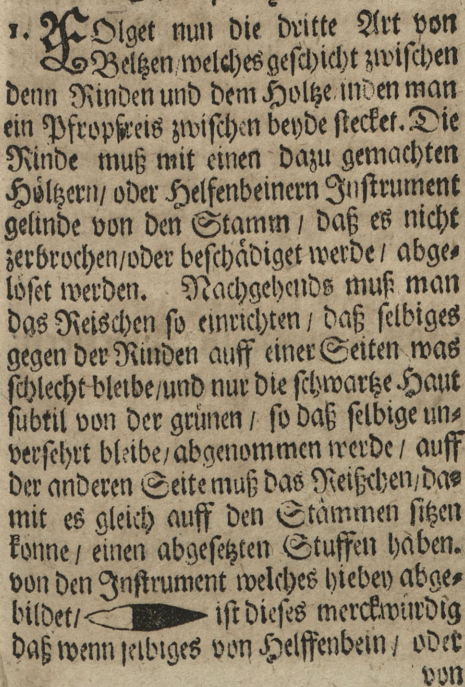 1. FOlget nun die dritte Art von
Beltzen/welches geschicht zwischen
denn Rinden und dem Holtze inden man
ein Pfropffreis zwischen beyde stecket. Die
Rinde muß mit einen dazu gemachten
Höltzern/ oder Helfenbeinern Instrument
gelinde von den Stamm / daß es nicht
zerbrochen/oder beschädiget werde / abge⸗
löset werden. Nachgehends muß man
das Reischen so einrichten / daß selbiges
gegen der Rinden auff einer Seiten was
schlecht bleibe/und nur die schwartze Haut
subtil von der grünen / so daß selbige un⸗
versehrt bleibe/abgenommen werde / auff
der anderen Seite muß das Reißchen/da⸗
mit es gleich auff den Stämmen sitzen
konne / einen abgesetzten Stuffen haben.
von den Instrument welches hiebey abge⸗
bildet/ ist dieses merckwürdig
daß wenn selbiges von Helffenbein / oder
von